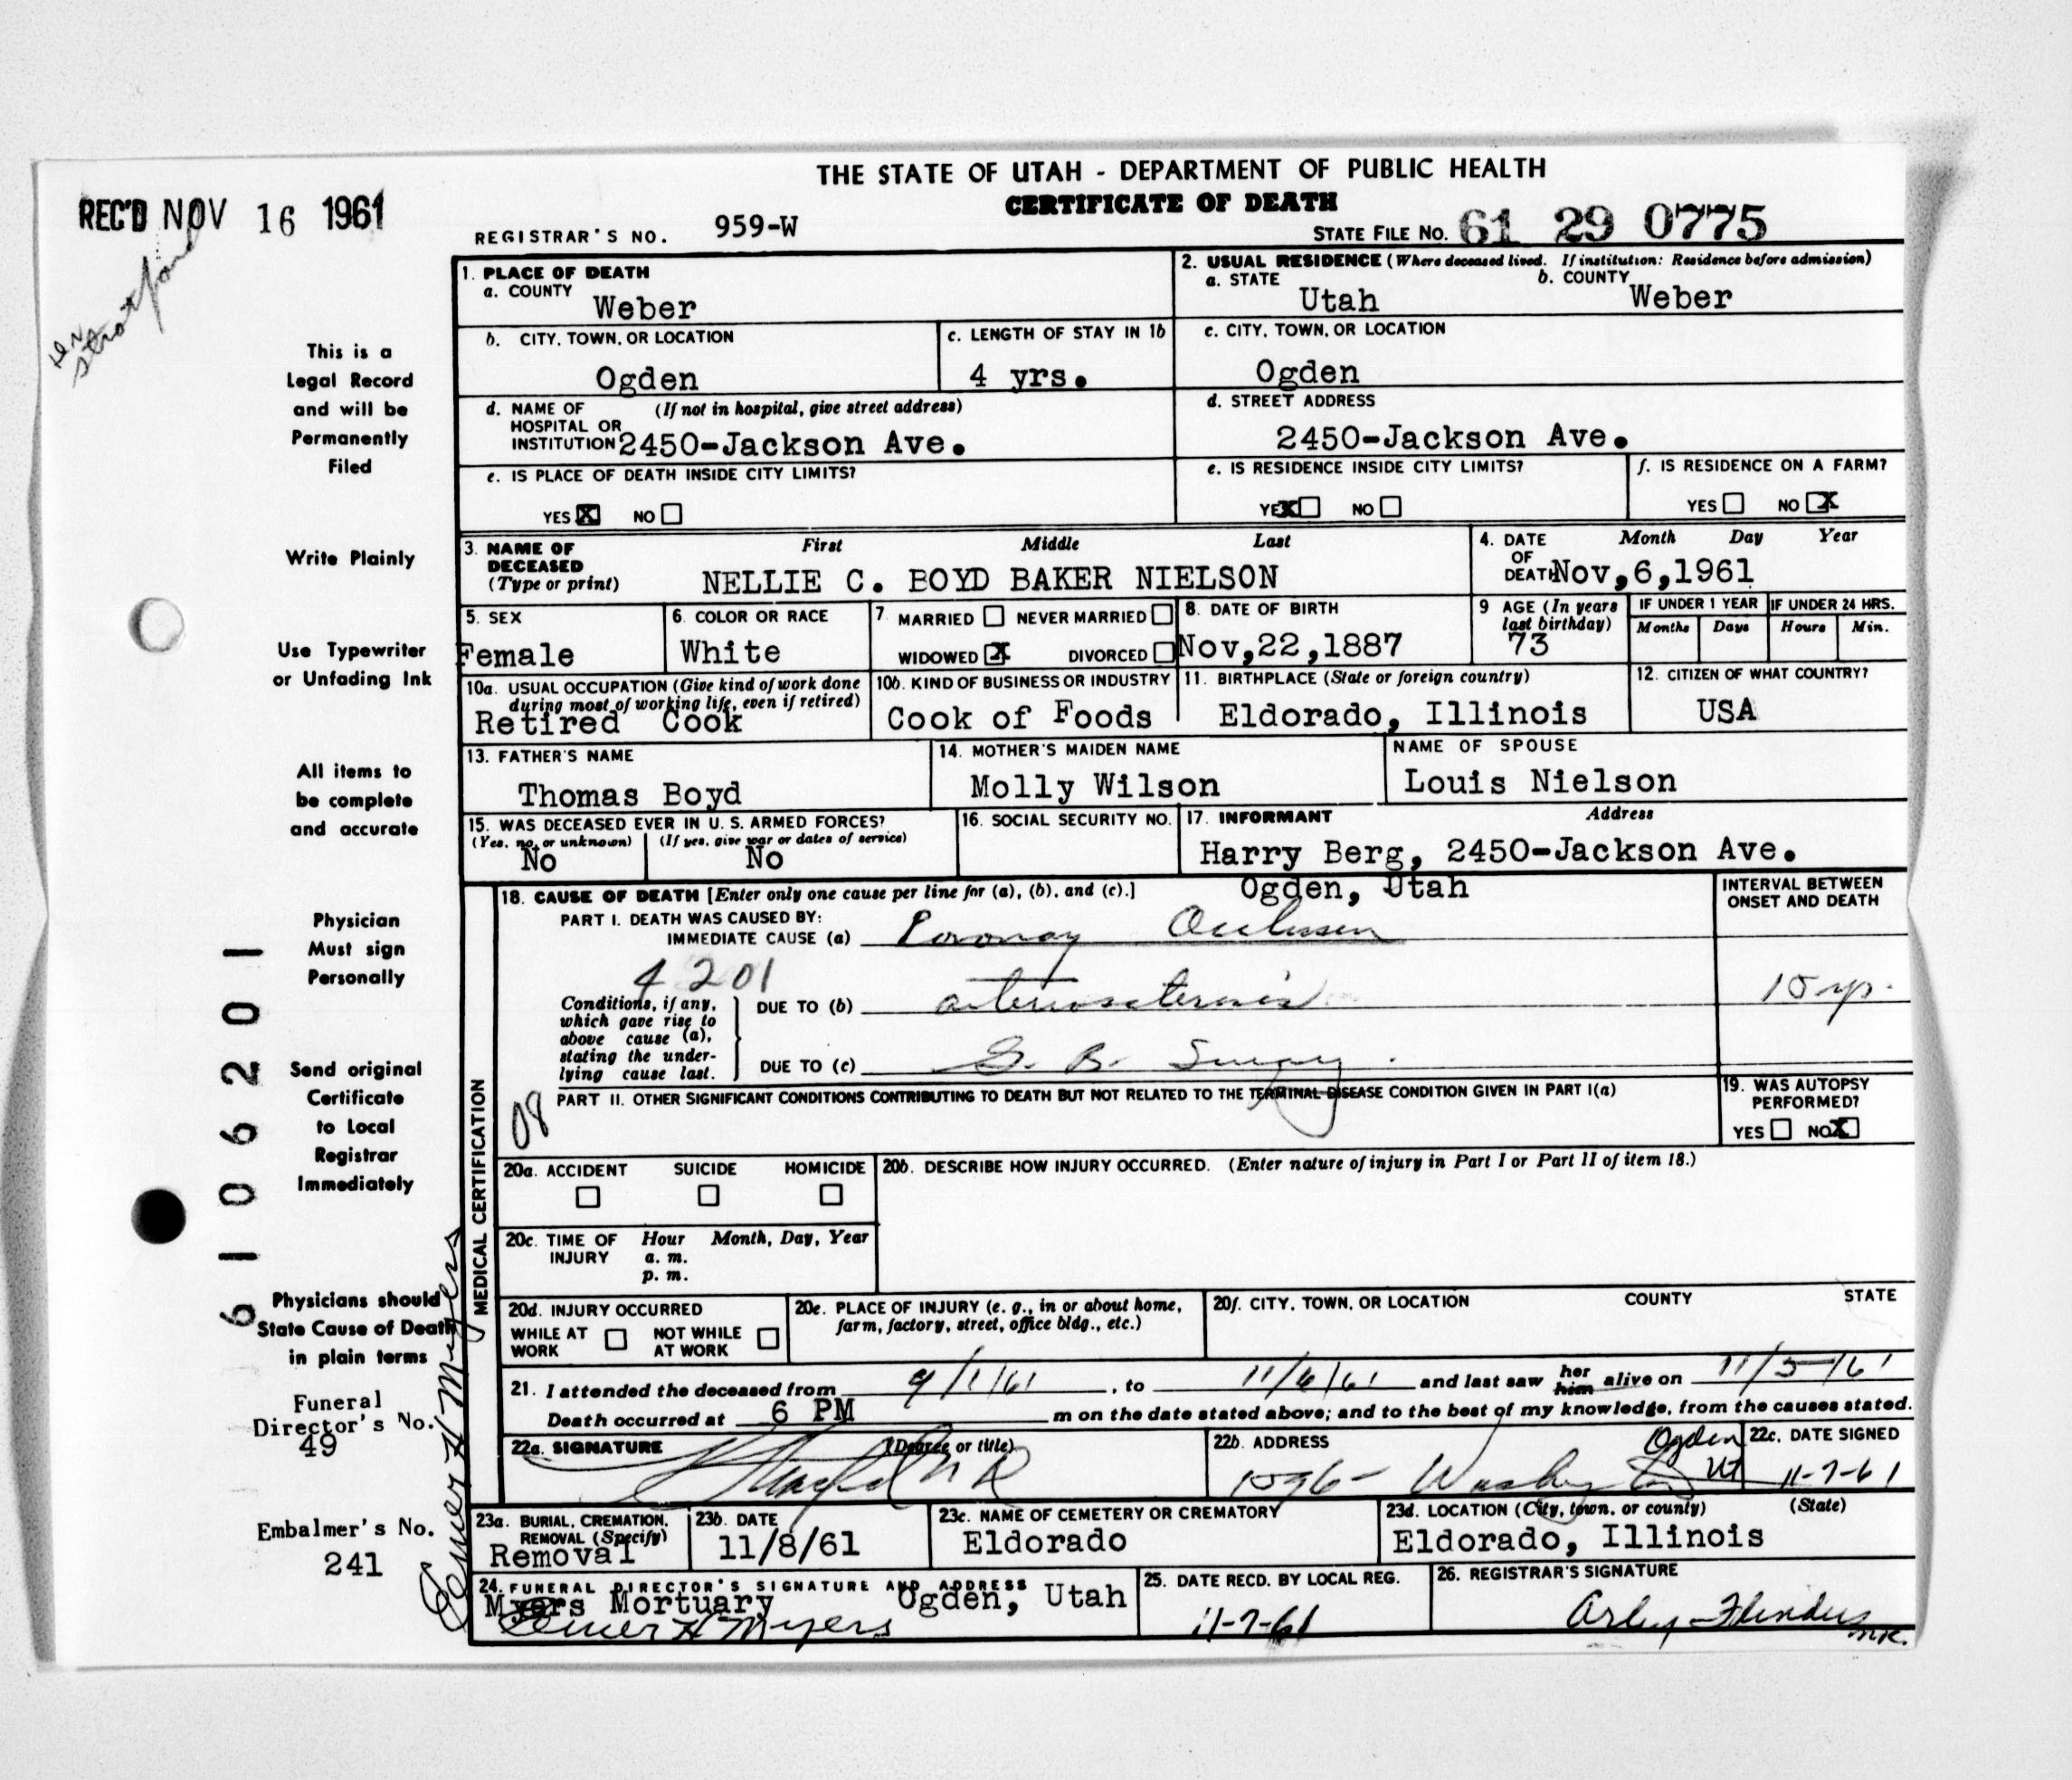 THE STATE OF UTAH - DEPARTMENT OF PUBLIC HEALTH
CERTIFICATE OF DEATH
REC'D NOV 16 1961
REGISTRAR'S NO. 959-W
STATE FILE NO. 61 29 0775
1. PLACE OF DEATH
a. COUNTY Weber
2. USUAL RESIDENCE (Where deceased lived. If institution: Residence before admission)
a. STATE Utah b. COUNTY Weber
b. CITY, TOWN, OR LOCATION Ogden
c. LENGTH OF STAY IN 1b 4 yrs.
c. CITY, TOWN, OR LOCATION Ogden
d. NAME OF HOSPITAL OR INSTITUTION (If not in hospital, give street address) 2450-Jackson Ave.
d. STREET ADDRESS 2450-Jackson Ave.
e. IS PLACE OF DEATH INSIDE CITY LIMITS?
YES X NO
e. IS RESIDENCE INSIDE CITY LIMITS?
YES X NO
f. IS RESIDENCE ON A FARM?
YES NO X
3. NAME OF DECEASED (Type or print) First Middle Last
NELLIE C. BOYD BAKER NIELSON
4. DATE OF DEATH Month Day Year
Nov,6,1961
5. SEX Female
6. COLOR OR RACE White
7 MARRIED NEVER MARRIED
WIDOWED X DIVORCED
8. DATE OF BIRTH Nov,22,1887
9 AGE (In years last birthday) 73
IF UNDER 1 YEAR Months Days
IF UNDER 24 HRS. Hours Min.
10a. USUAL OCCUPATION (Give kind of work done during most of working life, even if retired)
Retired Cook
10b. KIND OF BUSINESS OR INDUSTRY
Cook of Foods
11. BIRTHPLACE (State or foreign country)
Eldorado, Illinois
12. CITIZEN OF WHAT COUNTRY?
USA
13. FATHER'S NAME
Thomas Boyd
14. MOTHER'S MAIDEN NAME
Molly Wilson
NAME OF SPOUSE
Louis Nielson
15. WAS DECEASED EVER IN U. S. ARMED FORCES?
(Yes, no, or unknown) No
(If yes, give war or dates of service) No
16. SOCIAL SECURITY NO.
17. INFORMANT Address
Harry Berg, 2450-Jackson Ave.
Ogden, Utah
18. CAUSE OF DEATH [Enter only one cause per line for (a), (b), and (c).]
INTERVAL BETWEEN ONSET AND DEATH
PART I. DEATH WAS CAUSED BY:
IMMEDIATE CAUSE (a) Coronary Occlusion
4201
Conditions, if any, which gave rise to above cause (a), stating the underlying cause last.
DUE TO (b) arteriosclerosis 15 yr.
DUE TO (c) G. B. Surgery.
08
PART II. OTHER SIGNIFICANT CONDITIONS CONTRIBUTING TO DEATH BUT NOT RELATED TO THE TERMINAL DISEASE CONDITION GIVEN IN PART I(a)
19. WAS AUTOPSY PERFORMED?
YES NO X
MEDICAL CERTIFICATION
20a. ACCIDENT SUICIDE HOMICIDE
20b. DESCRIBE HOW INJURY OCCURRED. (Enter nature of injury in Part I or Part II of item 18.)
20c. TIME OF INJURY Hour a. m. p. m. Month, Day, Year
20d. INJURY OCCURRED
WHILE AT WORK NOT WHILE AT WORK
20e. PLACE OF INJURY (e. g., in or about home, farm, factory, street, office bldg., etc.)
20f. CITY, TOWN, OR LOCATION COUNTY STATE
21. I attended the deceased from 9/1/61, to 11/6/61 and last saw her him alive on 11/5/61
Death occurred at 6 PM m on the date stated above; and to the best of my knowledge, from the causes stated.
22a. SIGNATURE (Degree or title)
22b. ADDRESS Ogden Ut
Washington
22c. DATE SIGNED 11-7-61
23a. BURIAL, CREMATION, REMOVAL (Specify)
Removal
23b. DATE
11/8/61
23c. NAME OF CEMETERY OR CREMATORY
Eldorado
23d. LOCATION (City, town, or county) (State)
Eldorado, Illinois
24. FUNERAL DIRECTOR'S SIGNATURE AND ADDRESS
Myers Mortuary Ogden, Utah
Elmer H Myers
25. DATE RECD. BY LOCAL REG.
11-7-61
26. REGISTRAR'S SIGNATURE
Arley Flinders
This is a
Legal Record
and will be
Permanently
Filed
Write Plainly
Use Typewriter
or Unfading Ink
All items to
be complete
and accurate
Physician
Must sign
Personally
Send original
Certificate
to Local
Registrar
Immediately
Physicians should
State Cause of Death
in plain terms
Funeral
Director's No.
49
Embalmer's No.
241
Elmer H Myers
6106201